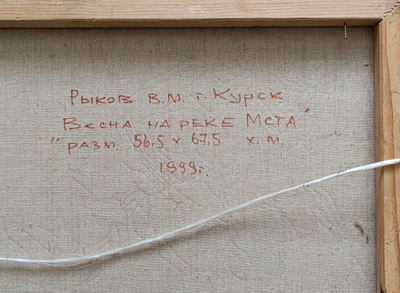 Рыков В.М. г. Курск
Весна на реке Мста"
" разм. 56,5 х 67,5 х.м.
1999г.